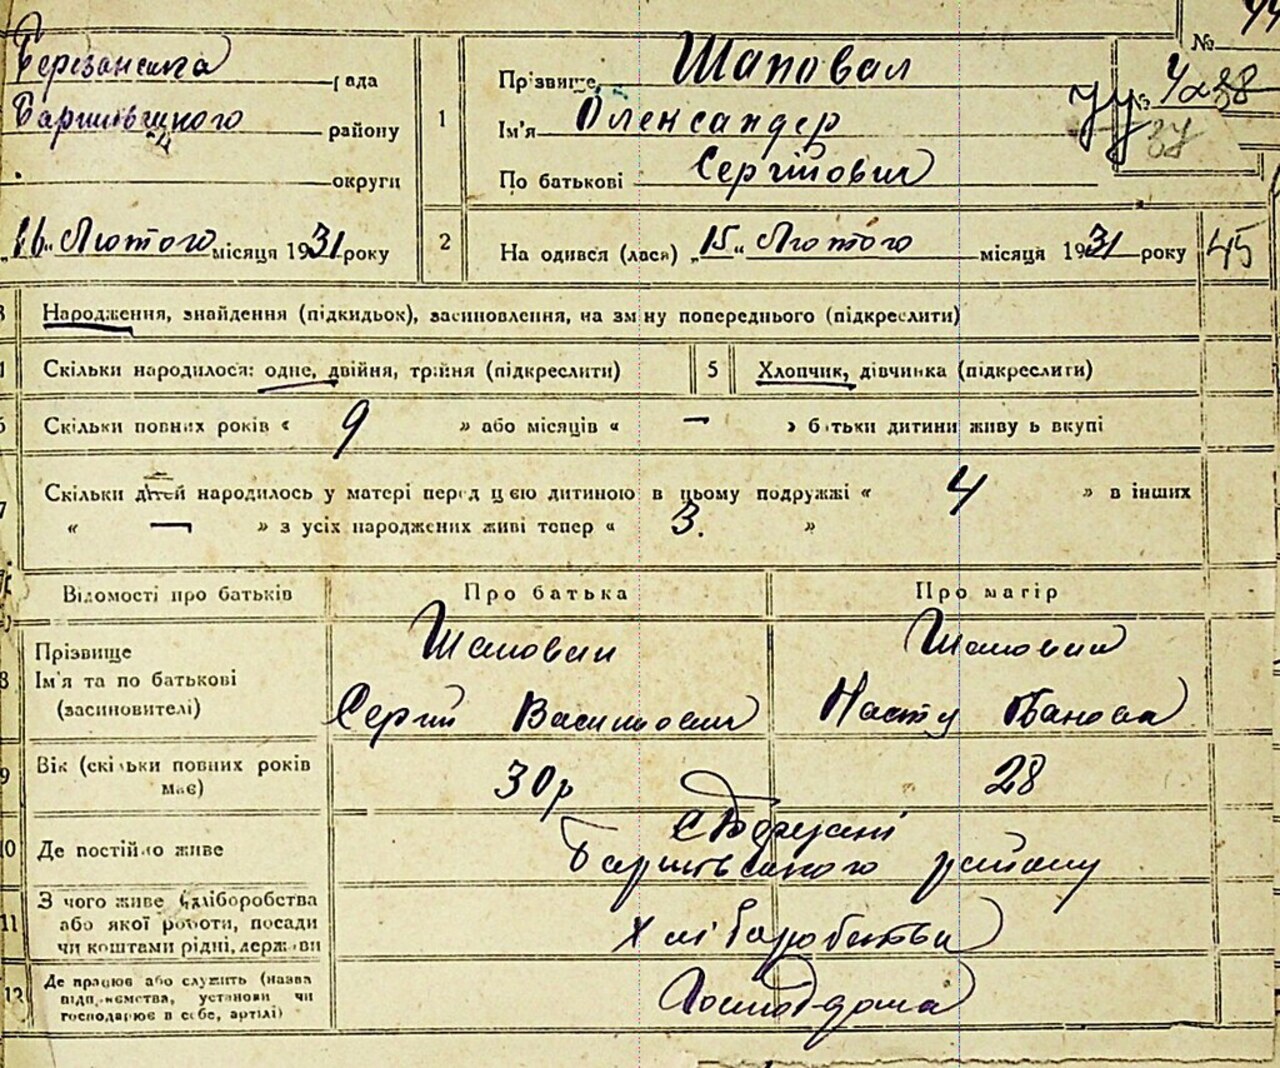 Березанська рада
Баришівського району
округи
16 Лютого місяця 1931 року
№
1 Прізвище Шаповал
Ім'я Олександер
По батькові Сергійович
2 На одився (лася) „15“ Лютого місяця 1931 року
45
Народження, знайдення (підкидьок), засиновлення, на зміну попереднього (підкреслити)
Скільки народилося: одне, двійня, трійня (підкреслити) 5 Хлопчик, дівчинка (підкреслити)
Скільки повних років « 9 » або місяців « — » батьки дитини живуть вкупі
7 Скільки дітей народилось у матері перед цією дитиною в цьому подружжі « 4 » в інших
« — » з усіх народжених живі тепер « 3. »
Відомості про батьків Про батька Про матір
8 Прізвище Шаповал Шаповал
Ім'я та по батькові Сергій Васильович Насту Іванова
(засиновителі)
9 Вік (скільки повних років має) 30р 28
10 Де постійно живе с Березані
Баришівського району
11 З чого живе (хліборобства
або якої роботи, посади Хліборобства
чи коштами рідні, держави
12 Де працює або служить (назва
підприємства, установи чи
господарює в себе, артілі)